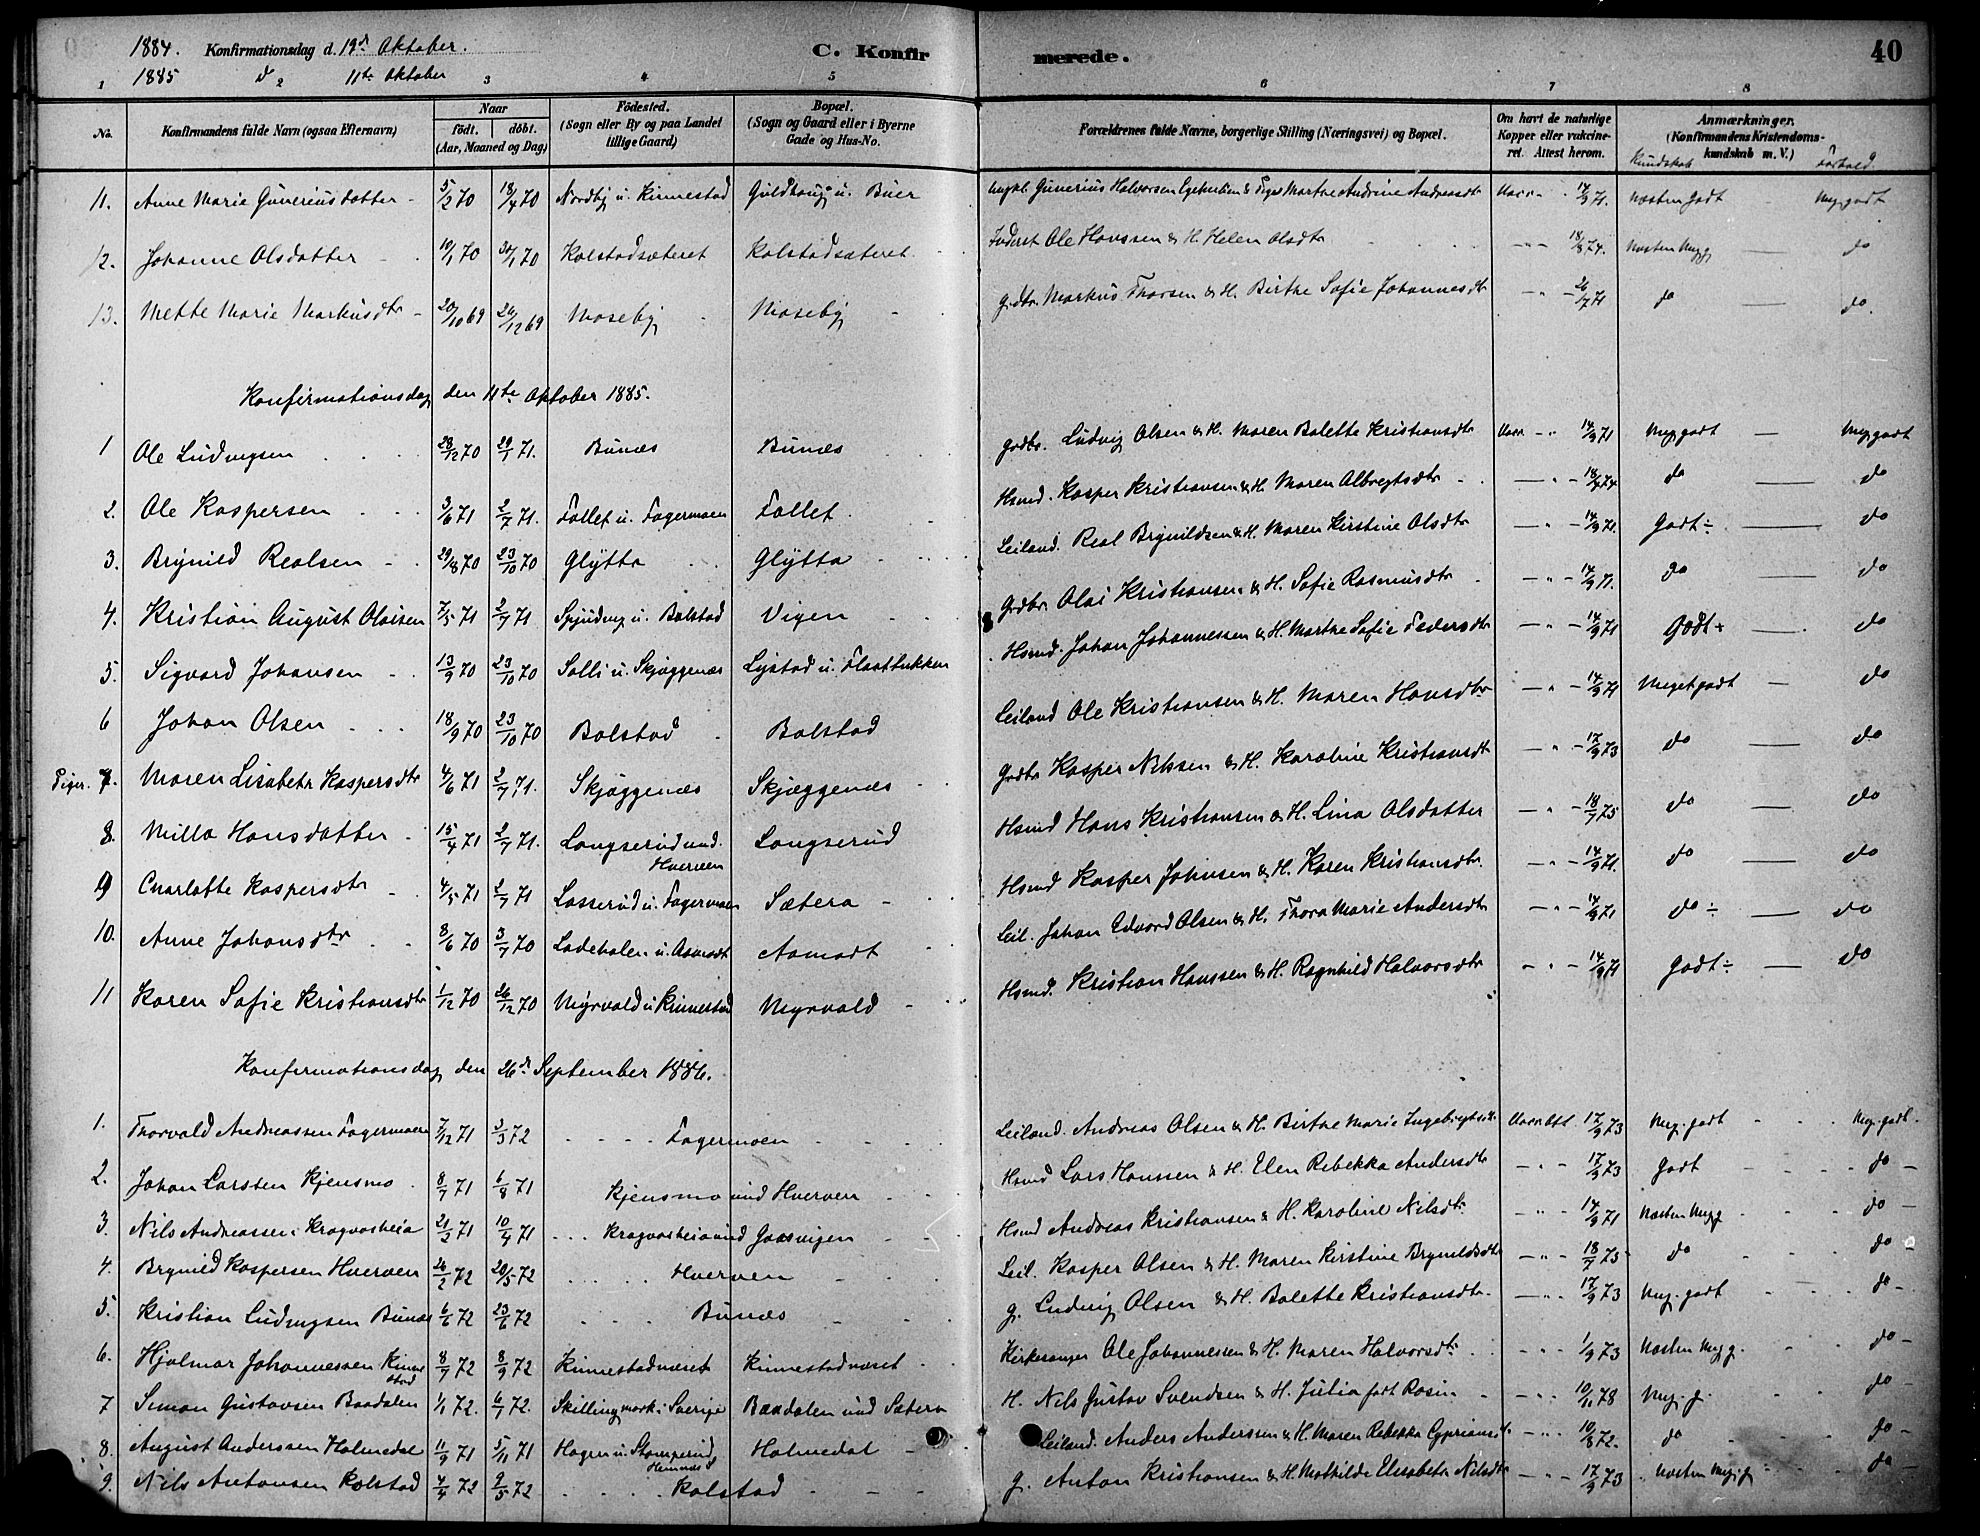 1884. Konfirmationsdag d. 19de Oktober. C. Konfirmerede. 40
1885 d 11te Oktober
1 2 3 4 5 6 7 8
No. Konfirmandens fulde Navn (ogsaa Efternavn) Naar født. døbt. (Aar, Maaned og Dag) Fødested. (Sogn eller By og paa Landet tillige Gaard) Bopæl. (Sogn og Gaard eller i Byerne Gade og Hus-No. Forældrenes fulde Navne, borgerlige Stilling (Næringsvei) og Bopæl. Om havt de naturlige Kopper eller vakcineret. Attest herom. Anmærkninger. (Konfirmandens Kristendomskundskab m. V.) Kundskab Forhold
11. Anne Marie Guneriusdatter 5/2 70 18/4 70 Nordby u. Kinnestad Guldhaug u. Buer Ungkl. Gunerius Halvorsen & Pige Marthe Andrine Andreasdtr Vacc. 14/9 71. Næsten godt Meg. godt
12. Johanne Olsdatter 10/1 70 30/1 70 Kolstadsæteret Kolstadsæteret Inderst Ole Hanssen & H. Helen Olsdtr 18/8 74. Næsten Meg g. do
13. Mette Marie Markusdtr 20/10 69 26/12 69 Moseby Moseby gdbr. Markus Thorsen & H. Birthe Sofie Johannesdtr 26/7 71 do do
Konfirmationsdag den 11te Oktober 1885.
1 Ole Ludvigsen 28/12 70 29/1 71. Bunæs Bunæs Grdbr. Ludvig Olsen & H. Maren Bolette Kristiansdtr Vacc. 14/9 71 Meg. godt Meg. godt
2. Ole Kaspersen 3/6 71 2/7 71. Follet u. Fagermoen Follet Hsmd. Kasper Kristiansen & H. Maren Albregtsdtr 18/8 74 do do
3. Brynild Realsen 29/8 70 23/10 70 Glytta Glytta Leiland. Real Brynildsen & H. Maren Kirstine Olsdtr 14/9 71. Godt ÷ do
4. Kristian August Olaisen 7/5 71 2/7 71 Spjudvig u. Bolstad Vigen Grdbr. Olai Kristiansen & H. Sofie Rasmusdtr 14/9 71. do do
5. Sigvard Johansen 13/9 70 23/10 70 Solli u. Skjæggenæs Lystad u. Flaattukken Hsmd. Johan Johannessen & H. Marthe Sofie Pedersdtr 14/9 71 Godt + do
6 Johan Olsen 18/9 70 23/10 70 Bolstad Bolstad Leiland Ole Kristiansen & H. Maren Hansdtr 14/9 71 Meget godt do
Piger. 7. Maren Lisabeth Kaspersdtr 4/6 71 2/7 71. Skjæggenæs Skjæggenæs Grdbr Kasper Nilssen & H. Karoline Kristiansdtr 17/9 73 do do
8. Milla Hansdatter 15/4 71 2/7 71. Langserud und. Hverven Langserud Hsmd Hans Kristiansen & H. Lina Olsdatter 18/7 75 do do
9 Charlotte Kaspersdtr 4/5 71 2/7 71 Lasserud u. Fagermoen Sætera Hsmd Kasper Johnsen & H. Karen Kristiansdtr. 14/9 71. do do
10. Anne Johansdtr 8/6 70 3/7 70 Ladehalen u. Aamodt Aamodt Leil. Johan Edvard Olsen & H. Thora Marie Andersdtr 14/9 71 do ÷ do
11 Karen Sofie Kristiansdtr 1/12 70 26/12 70 Myrvold u Kinnestad Myrvold Hsmd. Kristian Hanssen & H. Ragnhild Halvorsdtr 14/9 71 Godt ÷ do
Konfirmationsdag den 26de September 1886.
1. Thorvald Andreassen Fagermoen 7/12 71 3/3 72 Fagermoen Leiland. Andreas Olsen & H. Birthe Marie Ingebrigtsdtr Vacc. Att 17/9 73 Meg. godt Meg. godt.
2. Johan Larsten Kjensmo 8/7 71 6/8 71 Kjensmo und Hverven Hsmd Lars Hanssen & H. Elen Rebekka Andersdtr 17/9 73 Godt do
3. Nils Andreassen Kragvasheia 21/2 71 10/4 71 Kragvasheia und Gaasvigen Hsmd Andreas Kristiansen & H. Karoline Nilsdtr. 14/9 71 Næsten Meg g do
4. Brynild Kaspersen Hverven 26/2 72 20/5 72 Hverven Leil. Kasper Olsen & H. Maren Kirstine Brynildsdtr 18/7 75 do do
5. Kristian Ludvigsen Bunæs 6/6 72 23/6 72 Bunæs g. Ludvig Olsen & H. Bolette Kristiansdtr. 17/9 73 Meg. godt do
6. Hjalmar Johannessen Kinnestad 8/7 72 8/9 72 Kinnestadnæset Kinnestadnæset Kirkesanger Ole Johannessen & H. Maren Halvorsdtr. 1/9 73 Næsten Meg g. do
7 Simon Gustavsen Baadalen 1/1 72. 6/7 72. Skillingmark i Sverige Baadalen und Sætern H. Nils Gustav Svendsen & H. Julia født Rosin 10/11 78 Meg. g. do
8. August Anderssen Holmedal 11/9 71 5/11 71 Hagen u. Stomperud Hemnæs Holmedal Leiland. Anders Anderssen & H. Maren Rebekka Cypriansdtr 10/8 72. do do
9. Nils Antonsen Kolstad 4/4 72 2/5 72 Kolstad g. Anton Kristiansen & H. Mathilde Elisabeth Nilsdtr 17/9 73 Næsten Meg. g do